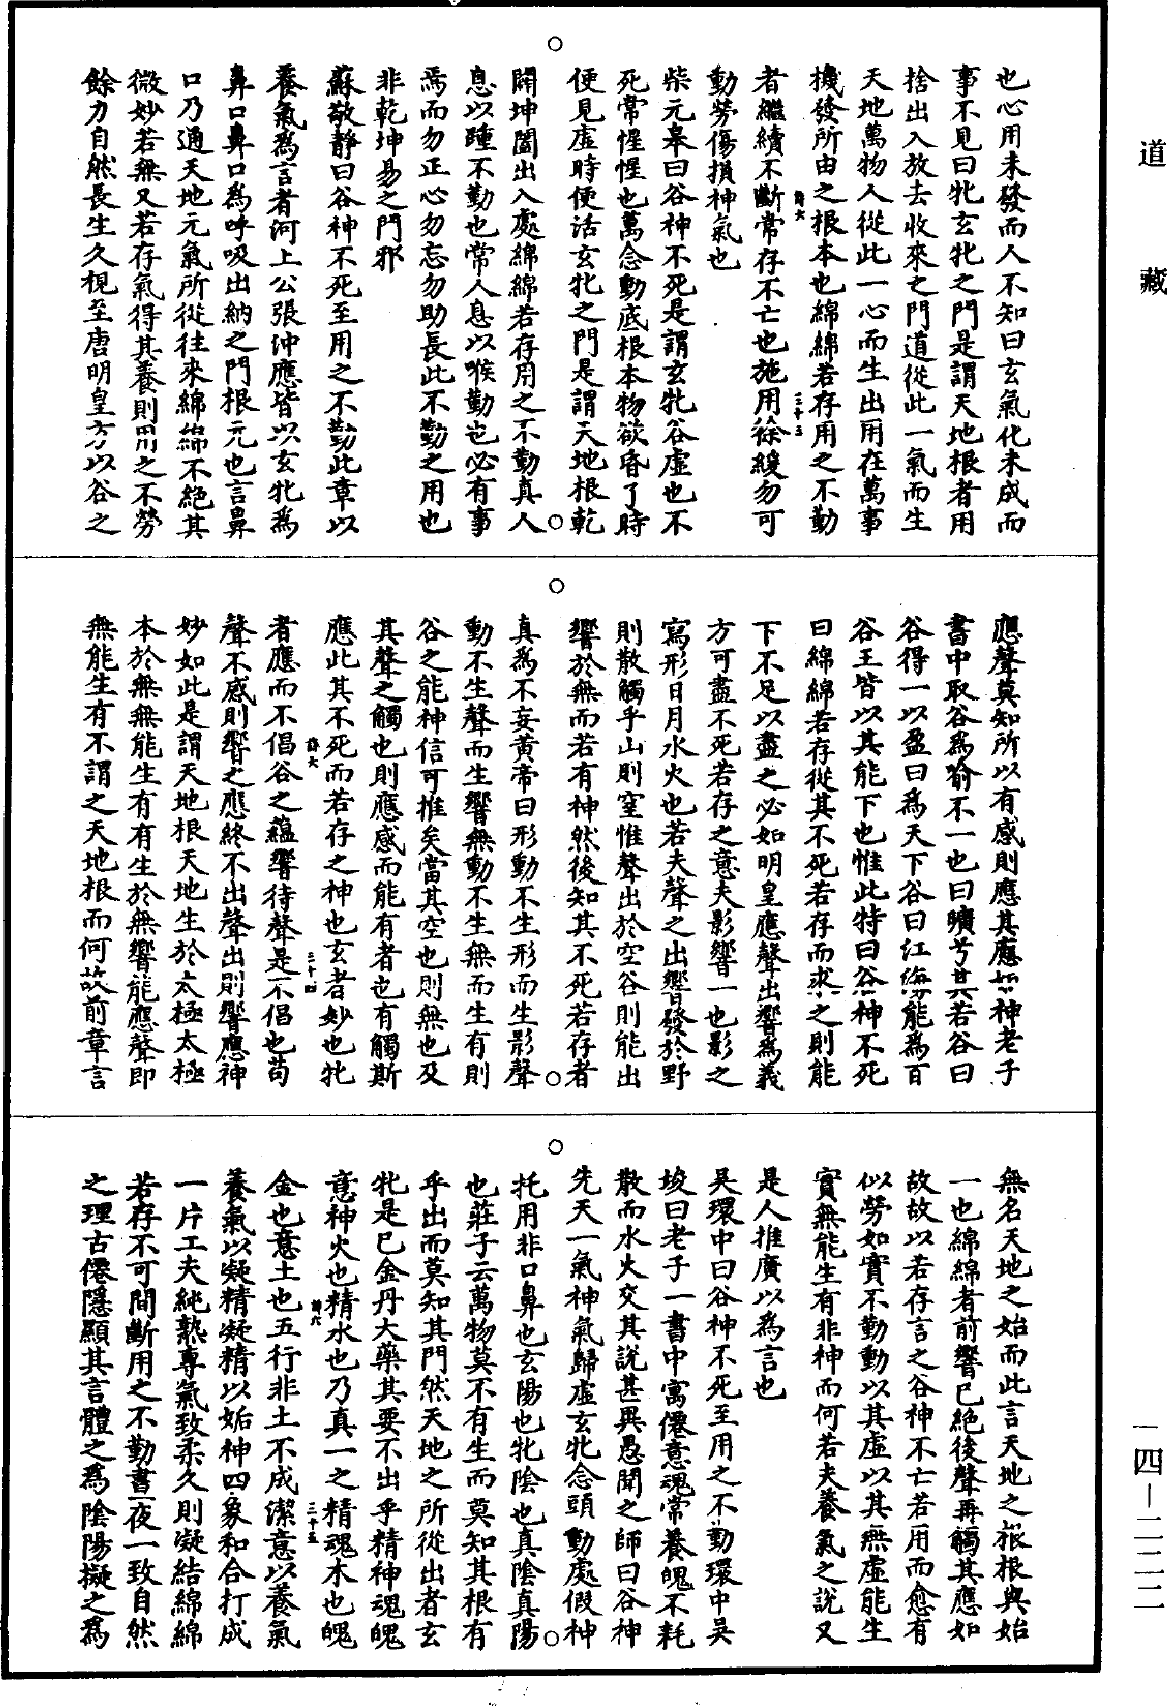 道藏
也心用未發而人不知曰玄氣化未成而
事不見曰牝玄牝之門是謂天地根者用
捨出入放去收來之門道從此一氣而生
天地萬物人從此一心而生出用在萬事
機發所由之根本也綿綿若存用之不勤
者繼續不斷常存不亡也施用徐緩勿可
動勞傷損神氣也
柴元皋曰谷神不死是謂玄牝谷虛也不
死常惺惺也萬念動底根本物欲昏了時
便見虛時便活玄牝之門是謂天地根乾
闢坤闔出入處綿綿若存用之不勤真人
息以踵不勤也常人息以喉勤也必有事
焉而勿正心勿忘勿助長此不勤之用也
非乾坤易之門邪
蘇敬靜曰谷神不死至用之不勤此章以
養氣為言者河上公張沖應皆以玄牝為
鼻口鼻口為呼吸出納之門根元也言鼻
口乃通天地元氣所從往來綿綿不絕其
微妙若無又若存氣得其養則用之不勞
餘力自然長生久視至唐明皇方以谷之
應聲莫知所以有感則應其應如神老子
書中取谷為喻不一也曰曠兮其若谷曰
谷得一以盈曰為天下谷曰江海能為百
谷王皆以其能下也惟此特曰谷神不死
曰綿綿若存從其不死若存而求之則能
下不足以盡之必如明皇應聲出響為義
方可盡不死若存之意夫影響一也影之
寫形日月水火也若夫聲之出響發於野
則散觸乎山則窒惟聲出於空谷則能出
響於無而若有神然後知其不死若存者
真為不妄黃帝曰形動不生形而生影聲
動不生聲而生響無動不生無而生有則
谷之能神信可推矣當其空也則無也及
其聲之觸也則應感而能有者也有觸斯
應此其不死而若存之神也玄者妙也牝
者應而不倡谷之蘊響待聲是不倡也苟
聲不感則響之應終不出聲出則響應神
妙如此是謂天地根天地生於太極太極
本於無無能生有有生於無響能應聲即
無能生有不謂之天地根而何故前章言
無名天地之始而此言天地之根根與始
一也綿綿者前響已絕後聲再觸其應如
故故以若存言之谷神不亡若用而愈有
似勞如實不勤動以其虛以其無虛能生
實無能生有非神而何若夫養氣之說又
是人推廣以為言也
吳環中曰谷神不死至用之不勤環中吳
埈曰老子一書中寓僊意魂常養魄不耗
散而水火交其說甚異愚聞之師曰谷神
先天一氣神氣歸虛玄牝念頭動處假神
托用非口鼻也玄陽也牝陰也真陰真陽
也莊子云萬物莫不有生而莫知其根有
乎出而莫知其門然天地之所從出者玄
牝是已金丹大藥其要不出乎精神魂魄
意神火也精水也乃真一之精魂木也魄
金也意土也五行非土不成潔意以養氣
養氣以凝精凝精以姤神四象和合打成
一片工夫純熟專氣致柔久則凝結綿綿
若存不可間斷用之不勤晝夜一致自然
之理古僊隱顯其言體之為陰陽擬之為
一四—二二二